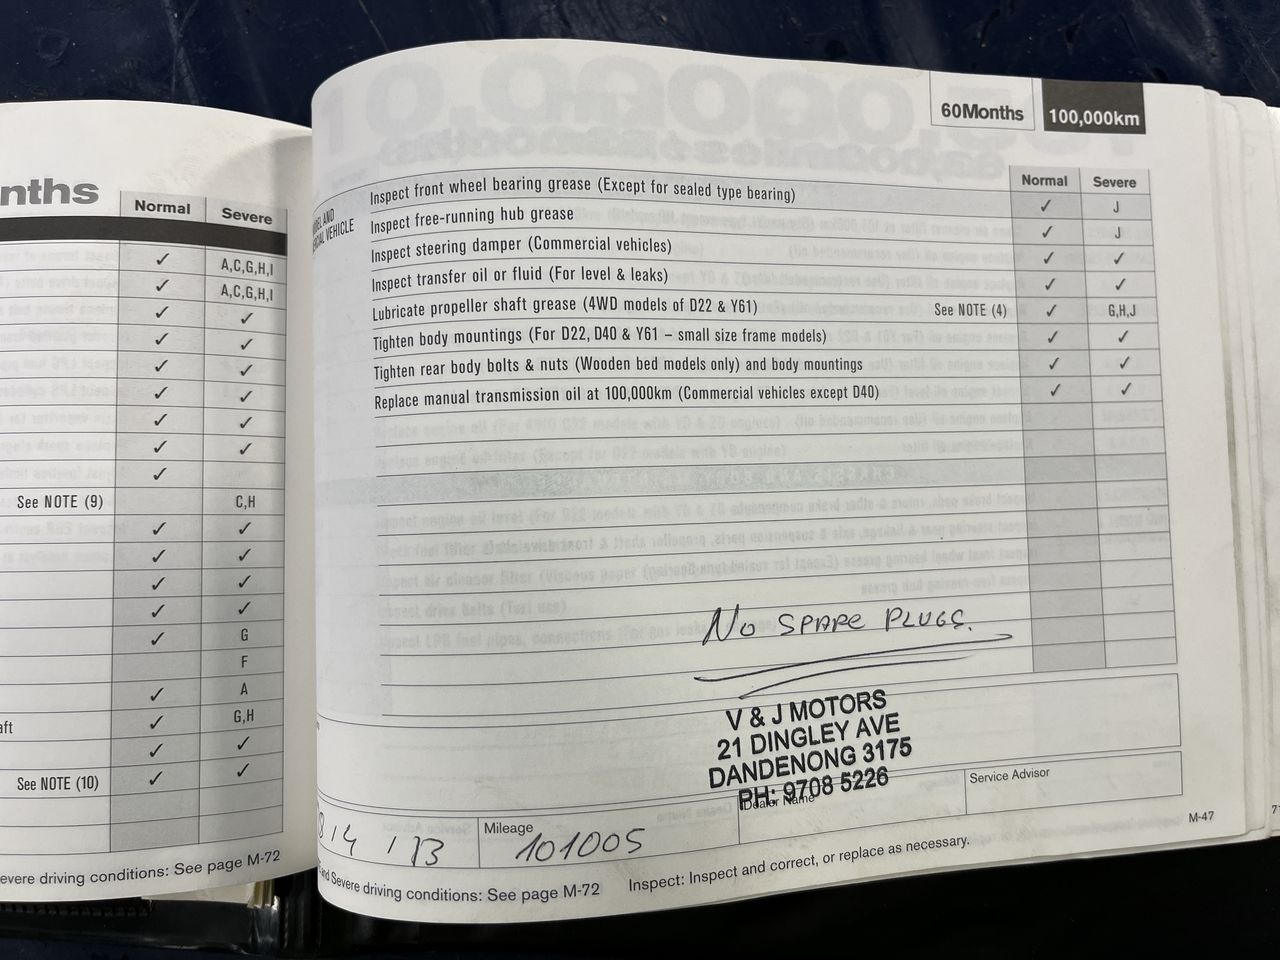 nths
Normal Severe
✓ A,C,G,H,I
✓ A,C,G,H,I
✓ ✓
✓ ✓
✓ ✓
✓ ✓
✓ ✓
✓ ✓
✓
See NOTE (9) C,H
✓ ✓
✓ ✓
✓ ✓
✓ ✓
✓ G
F
✓ A
aft ✓ G,H
✓ ✓
See NOTE (10) ✓ ✓
evere driving conditions: See page M-72
60Months 100,000km
Normal Severe
VEHICLE
Inspect front wheel bearing grease (Except for sealed type bearing) ✓ J
Inspect free-running hub grease ✓ J
Inspect steering damper (Commercial vehicles) ✓ ✓
Inspect transfer oil or fluid (For level & leaks) ✓ ✓
Lubricate propeller shaft grease (4WD models of D22 & Y61) See NOTE (4) ✓ G,H,J
Tighten body mountings (For D22, D40 & Y61 – small size frame models) ✓ ✓
Tighten rear body bolts & nuts (Wooden bed models only) and body mountings ✓ ✓
Replace manual transmission oil at 100,000km (Commercial vehicles except D40) ✓ ✓
No SPARE PLUGS.
V & J MOTORS
21 DINGLEY AVE
DANDENONG 3175
PH: 9708 5226
Dealer Name
Service Advisor
8 / 4 / 13
Mileage
101005
and Severe driving conditions: See page M-72 Inspect: Inspect and correct, or replace as necessary.
M-47